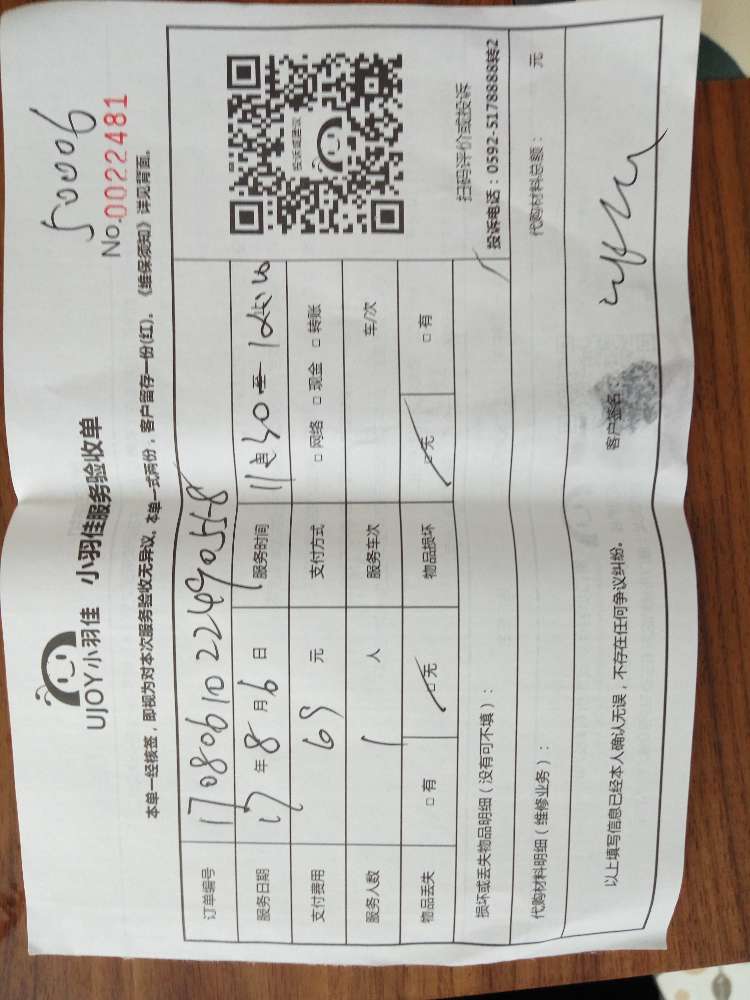 50006
No.0022481
UJOY小羽佳 小羽佳服务验收单
本单一经核签，即视为对本次服务验收无异议、本单一式两份，客户留存一份(红)。《维保须知》详见背面。
订单编号 170806102249055-8
服务日期 17年8月6日 服务时间
支付费用 69元 支付方式 □网络 □现金 □转账
服务人数 1人 服务车次 车/次
物品丢失 □有 □无 物品损坏 □无 □有
投诉或建议
扫码评价或投诉
投诉电话：0592-5178888转2
损坏或丢失物品明细（没有可不填）：
代购材料明细（维修业务）： 代购材料总额： 元
以上填写信息已经本人确认无误，不存在任何争议纠纷。 客户签名：